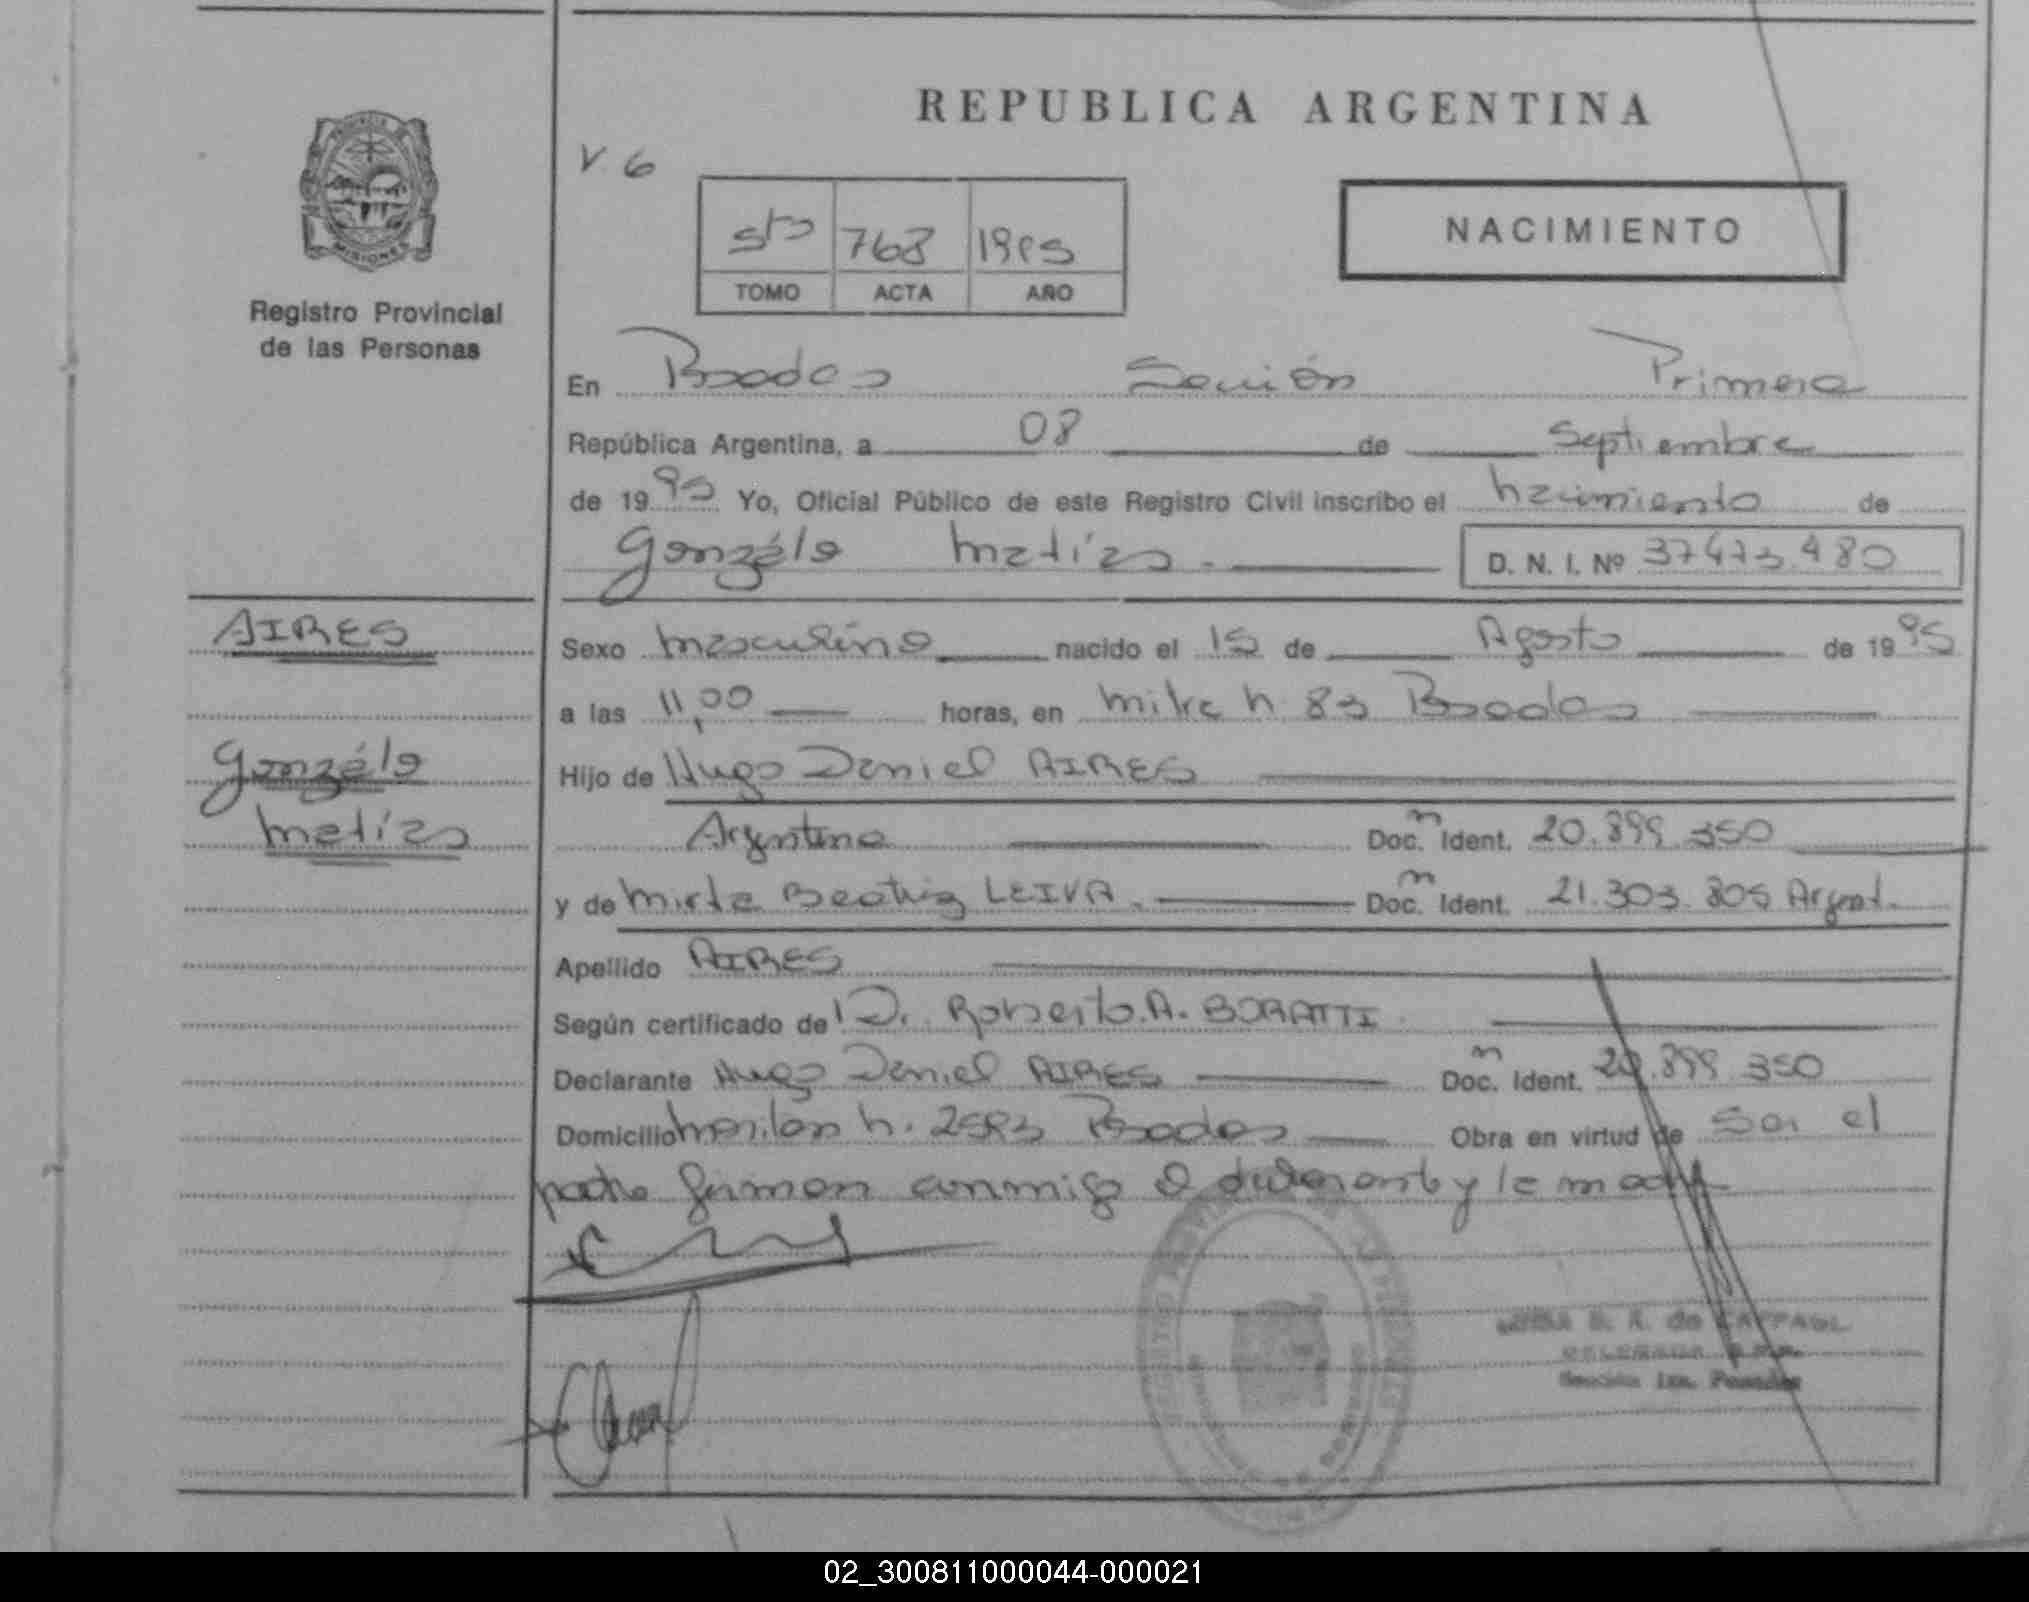 REPUBLICA ARGENTINA
V. 6
5to 768 1995
TOMO ACTA AÑO
NACIMIENTO
PROVINCIA DE
MISIONES
Registro Provincial
de las Personas
En Posadas Sección Primera
República Argentina, a 08 de Septiembre
de 1995 Yo, Oficial Público de este Registro Civil inscribo el nacimiento de
Gonzálo Matías. D. N. I. Nº 37.473.480
AIRES
Sexo masculino nacido el 15 de Agosto de 1995
a las 11,00 horas, en Mitre n 83 Posadas
Gonzálo
Matías
Hijo de Hugo Daniel AIRES
Argentino Doc. n Ident. 20.899.350
y de Mirta Beatriz LEIVA. Doc. n Ident. 21.303.805 Argent.
Apellido AIRES
Según certificado de Dr. Roberto A. BORATTI
Declarante Hugo Daniel AIRES Doc. n Ident. 20.899.350
Domicilio n. Posadas Obra en virtud de Ser el
padre firman conmigo el declarante y la madre
REGISTRO PROVINCIAL DE LAS PERSONAS
DELEGADA
Sección 1ra. Posadas
02_300811000044-000021